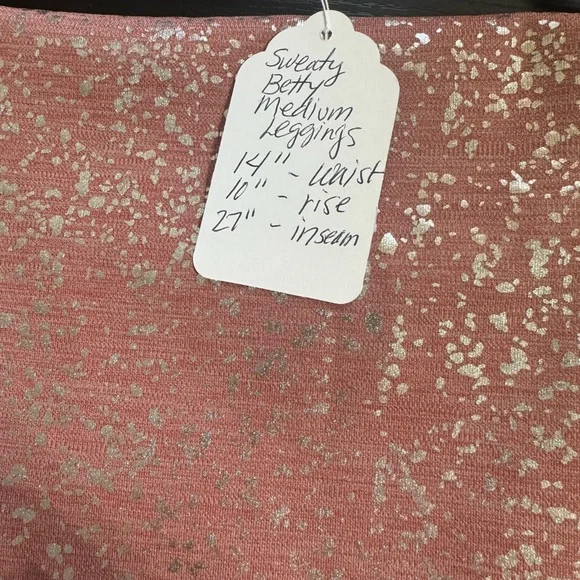 Sweaty
Betty
Medium
Leggings
14" - waist
10" - rise
27" - inseam